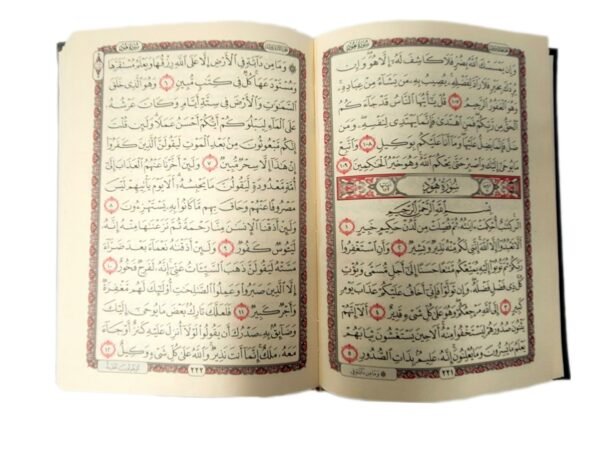 وَإِن يَمْسَسْكَ ٱللَّهُ بِضُرٍّ فَلَا كَاشِفَ لَهُۥٓ إِلَّا هُوَ وَإِن
يُرِدْكَ بِخَيْرٍ فَلَا رَآدَّ لِفَضْلِهِۦ يُصِيبُ بِهِۦ مَن يَشَآءُ مِنْ عِبَادِهِۦ
وَهُوَ ٱلْغَفُورُ ٱلرَّحِيمُ ١٠٧ قُلْ يَٰٓأَيُّهَا ٱلنَّاسُ قَدْ جَآءَكُمُ
ٱلْحَقُّ مِن رَّبِّكُمْ فَمَنِ ٱهْتَدَىٰ فَإِنَّمَا يَهْتَدِى لِنَفْسِهِۦ وَمَن
ضَلَّ فَإِنَّمَا يَضِلُّ عَلَيْهَا وَمَآ أَنَا۠ عَلَيْكُم بِوَكِيلٍ ١٠٨ وَٱتَّبِعْ
مَا يُوحَىٰٓ إِلَيْكَ وَٱصْبِرْ حَتَّىٰ يَحْكُمَ ٱللَّهُ وَهُوَ خَيْرُ ٱلْحَٰكِمِينَ ١٠٩
سُورَةُ هُودٍ
بِسْمِ ٱللَّهِ ٱلرَّحْمَٰنِ ٱلرَّحِيمِ
الٓر كِتَٰبٌ أُحْكِمَتْ ءَايَٰتُهُۥ ثُمَّ فُصِّلَتْ مِن لَّدُنْ حَكِيمٍ خَبِيرٍ ١
أَلَّا تَعْبُدُوٓا۟ إِلَّا ٱللَّهَ إِنَّنِى لَكُم مِّنْهُ نَذِيرٌ وَبَشِيرٌ ٢ وَأَنِ ٱسْتَغْفِرُوا۟
رَبَّكُمْ ثُمَّ تُوبُوٓا۟ إِلَيْهِ يُمَتِّعْكُم مَّتَٰعًا حَسَنًا إِلَىٰٓ أَجَلٍ مُّسَمًّى وَيُؤْتِ
كُلَّ ذِى فَضْلٍ فَضْلَهُۥ وَإِن تَوَلَّوْا۟ فَإِنِّىٓ أَخَافُ عَلَيْكُمْ عَذَابَ يَوْمٍ
كَبِيرٍ ٣ إِلَى ٱللَّهِ مَرْجِعُكُمْ وَهُوَ عَلَىٰ كُلِّ شَىْءٍ قَدِيرٌ ٤ أَلَآ إِنَّهُمْ
يَثْنُونَ صُدُورَهُمْ لِيَسْتَخْفُوا۟ مِنْهُ أَلَا حِينَ يَسْتَغْشُونَ ثِيَابَهُمْ
يَعْلَمُ مَا يُسِرُّونَ وَمَا يُعْلِنُونَ إِنَّهُۥ عَلِيمٌۢ بِذَاتِ ٱلصُّدُورِ ٥
٢٢١
۞ وَمَا مِن دَآبَّةٍ فِى ٱلْأَرْضِ إِلَّا عَلَى ٱللَّهِ رِزْقُهَا وَيَعْلَمُ مُسْتَقَرَّهَا
وَمُسْتَوْدَعَهَا كُلٌّ فِى كِتَٰبٍ مُّبِينٍ ٦ وَهُوَ ٱلَّذِى خَلَقَ
ٱلسَّمَٰوَٰتِ وَٱلْأَرْضَ فِى سِتَّةِ أَيَّامٍ وَكَانَ عَرْشُهُۥ
عَلَى ٱلْمَآءِ لِيَبْلُوَكُمْ أَيُّكُمْ أَحْسَنُ عَمَلًا وَلَئِن قُلْتَ
إِنَّكُم مَّبْعُوثُونَ مِنۢ بَعْدِ ٱلْمَوْتِ لَيَقُولَنَّ ٱلَّذِينَ كَفَرُوٓا۟
إِنْ هَٰذَآ إِلَّا سِحْرٌ مُّبِينٌ ٧ وَلَئِنْ أَخَّرْنَا عَنْهُمُ ٱلْعَذَابَ إِلَىٰٓ
أُمَّةٍ مَّعْدُودَةٍ لَّيَقُولُنَّ مَا يَحْبِسُهُۥٓ أَلَا يَوْمَ يَأْتِيهِمْ لَيْسَ
مَصْرُوفًا عَنْهُمْ وَحَاقَ بِهِم مَّا كَانُوا۟ بِهِۦ يَسْتَهْزِءُونَ ٨
وَلَئِنْ أَذَقْنَا ٱلْإِنسَٰنَ مِنَّا رَحْمَةً ثُمَّ نَزَعْنَٰهَا مِنْهُ إِنَّهُۥ
لَيَـُٔوسٌ كَفُورٌ ٩ وَلَئِنْ أَذَقْنَٰهُ نَعْمَآءَ بَعْدَ ضَرَّآءَ
مَسَّتْهُ لَيَقُولَنَّ ذَهَبَ ٱلسَّيِّـَٔاتُ عَنِّىٓ إِنَّهُۥ لَفَرِحٌ فَخُورٌ ١٠
إِلَّا ٱلَّذِينَ صَبَرُوا۟ وَعَمِلُوا۟ ٱلصَّٰلِحَٰتِ أُو۟لَٰٓئِكَ لَهُم مَّغْفِرَةٌ
وَأَجْرٌ كَبِيرٌ ١١ فَلَعَلَّكَ تَارِكٌۢ بَعْضَ مَا يُوحَىٰٓ إِلَيْكَ
وَضَآئِقٌۢ بِهِۦ صَدْرُكَ أَن يَقُولُوا۟ لَوْلَآ أُنزِلَ عَلَيْهِ كَنزٌ أَوْ جَآءَ
مَعَهُۥ مَلَكٌ إِنَّمَآ أَنتَ نَذِيرٌ وَٱللَّهُ عَلَىٰ كُلِّ شَىْءٍ وَكِيلٌ ١٢
٢٢٢